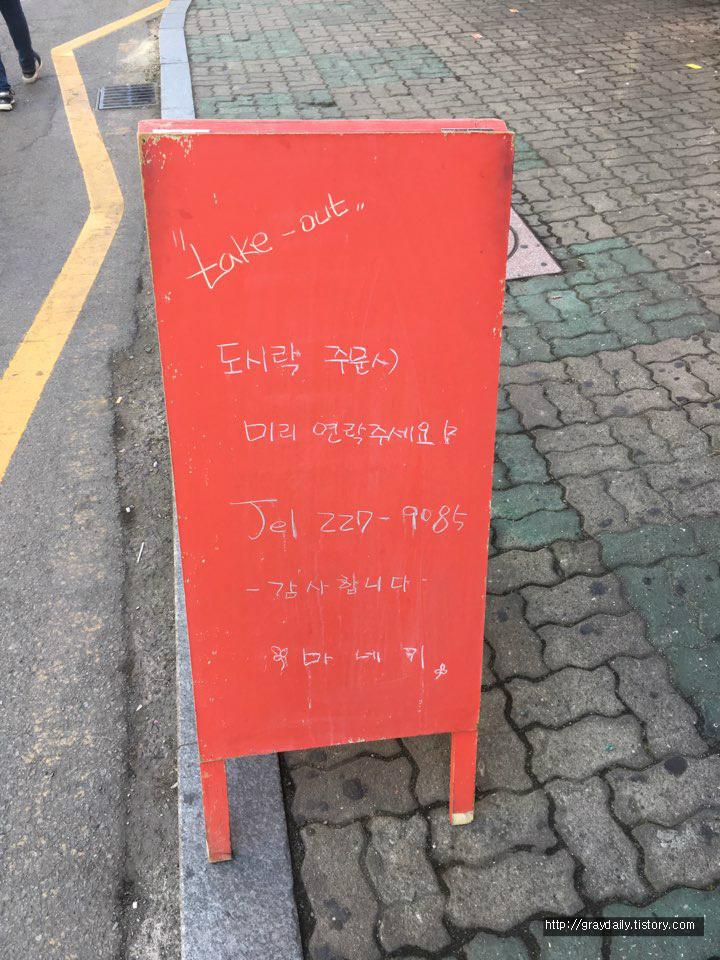 "take-out"
도시락 주문시
미리 연락주세요
Tel 227-9085
-감사합니다-
마네키
http://graydaily.tistory.com